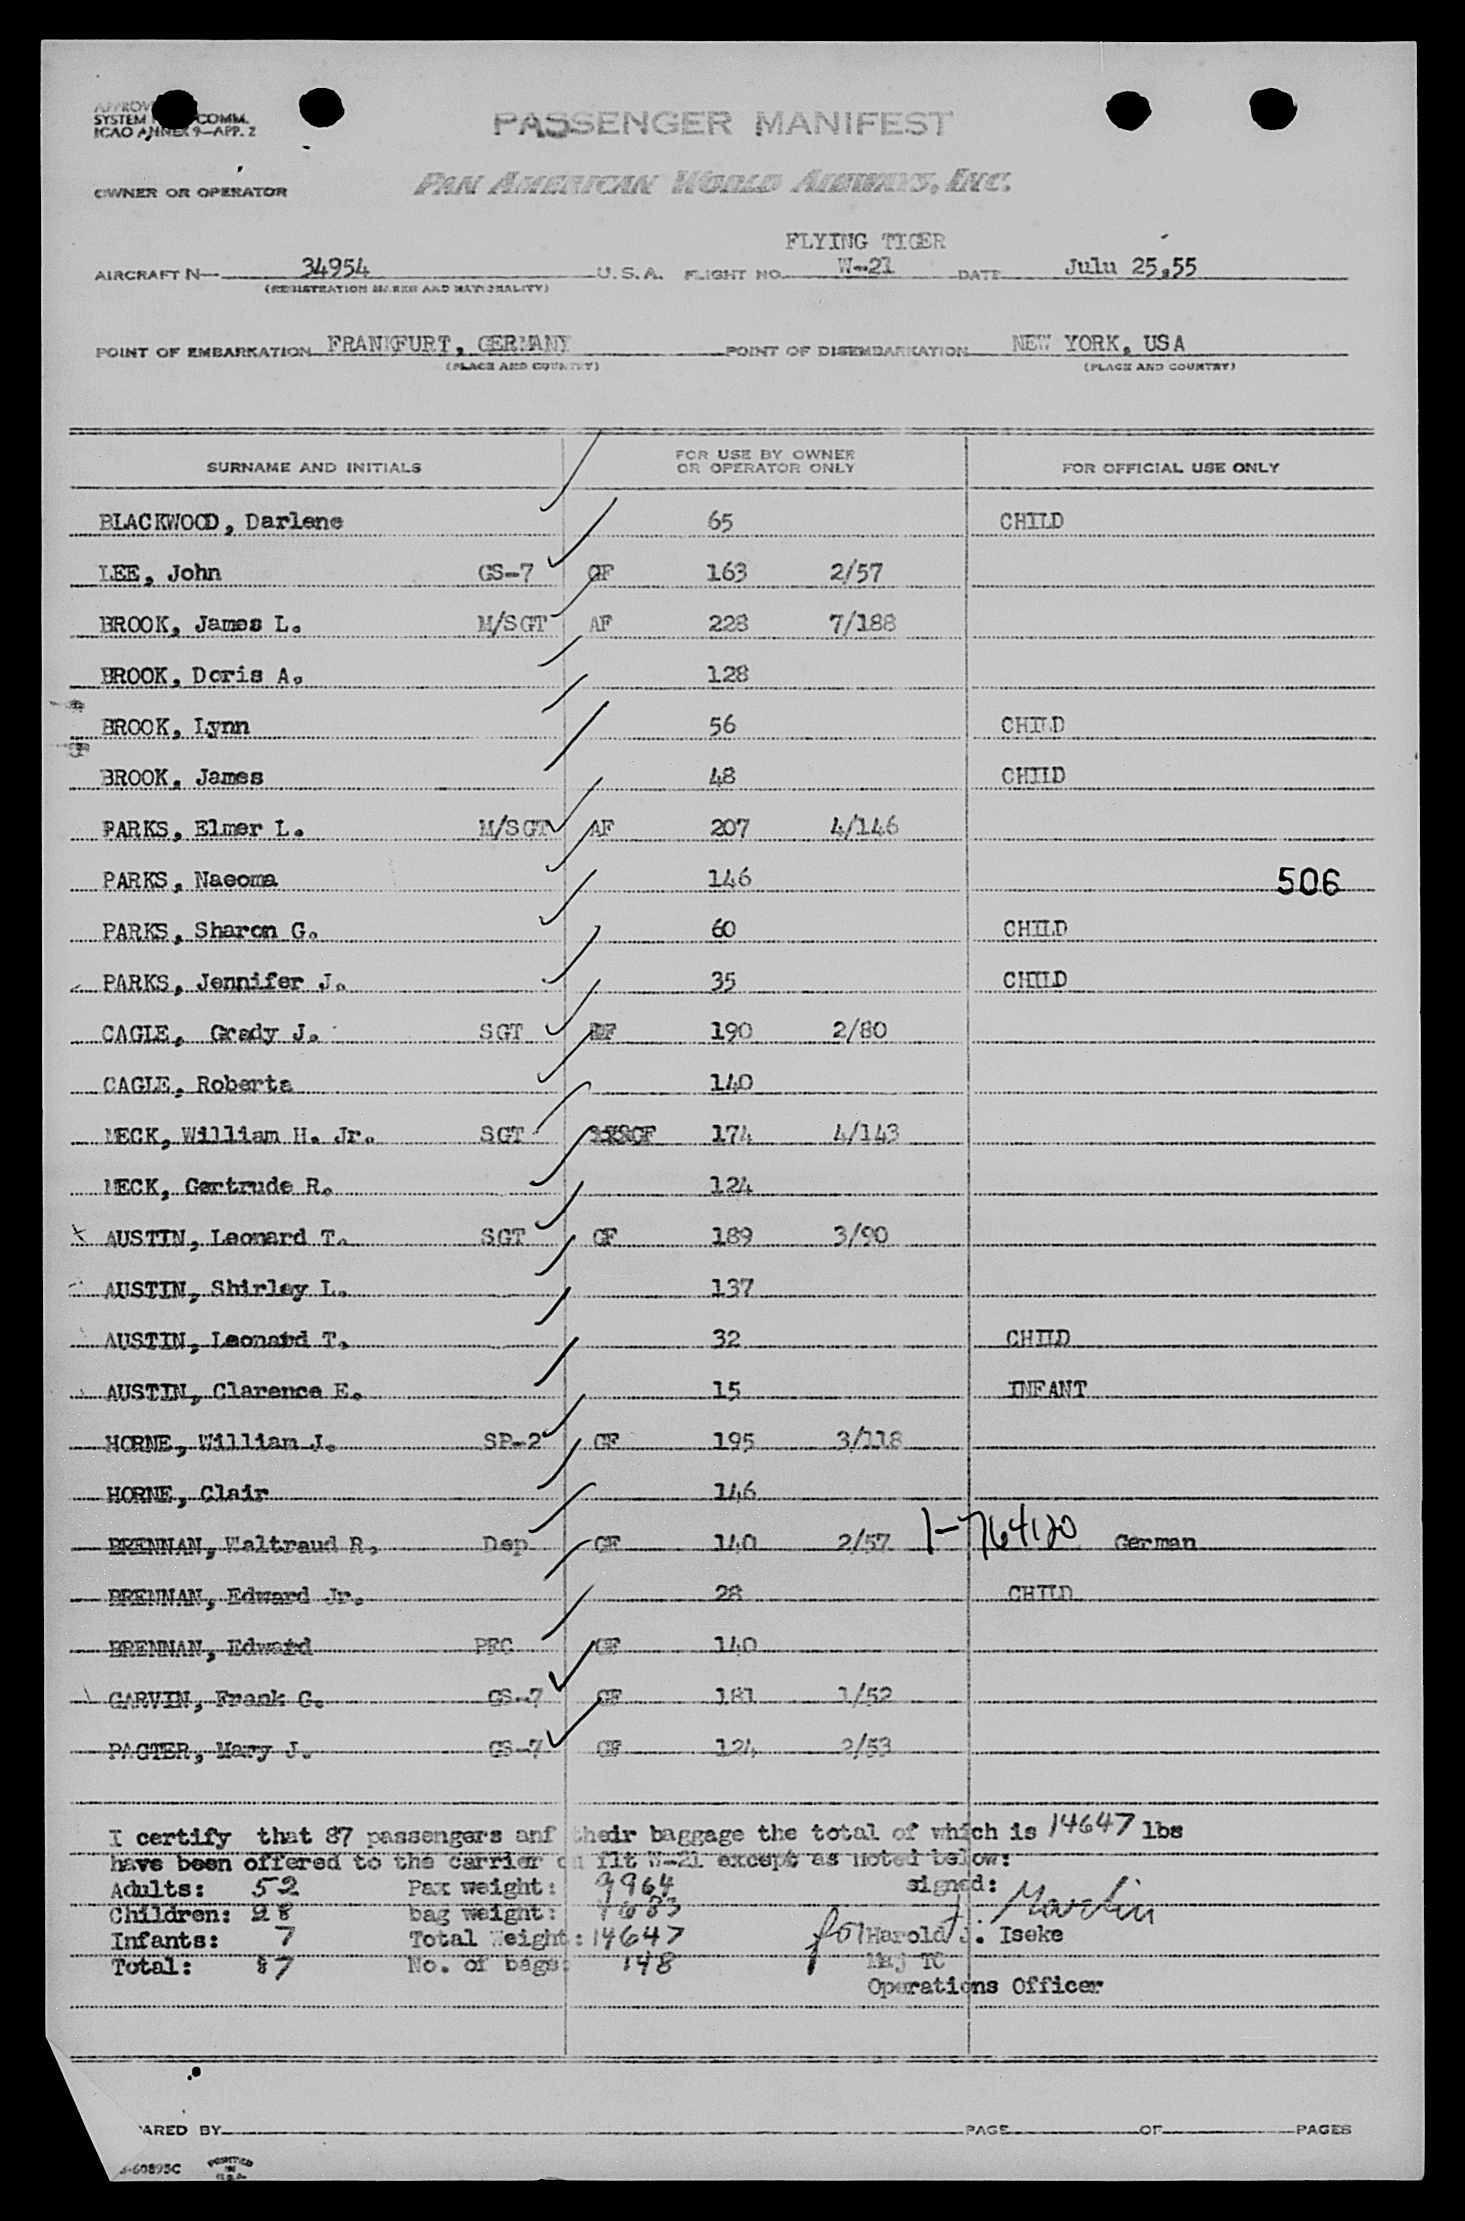 SYSTEM COMM.
ICAO ANNEX 9—APP. 2
PASSENGER MANIFEST
OWNER OR OPERATOR PAN AMERICAN WORLD AIRWAYS, INC.
FLYING TIGER
AIRCRAFT N— 34954 U. S. A. FLIGHT NO. W-21 DATE Julu 25,55
(REGISTRATION MARKS AND NATIONALITY)
POINT OF EMBARKATION FRANKFURT, GERMANY POINT OF DISEMBARKATION NEW YORK, USA
(PLACE AND COUNTRY) (PLACE AND COUNTRY)
SURNAME AND INITIALS FOR USE BY OWNER OR OPERATOR ONLY FOR OFFICIAL USE ONLY
BLACKWOOD, Darlene 65 CHILD
LEE, John GS-7 GF 163 2/57
BROOK, James L. M/SGT AF 228 7/188
BROOK, Doris A. 128
BROOK, Lynn 56 CHILD
BROOK, James 48 CHILD
PARKS, Elmer L. M/SGT AF 207 4/146
PARKS, Naeoma 146 506
PARKS, Sharon G. 60 CHILD
PARKS, Jennifer J. 35 CHILD
CAGLE, Grady J. SGT 190 2/80
CAGLE, Roberta 140
MECK, William H. Jr. SGT GF 174 4/143
MECK, Gertrude R. 124
AUSTIN, Leonard T. SGT GF 189 3/90
AUSTIN, Shirley L. 137
AUSTIN, Leonard T. 32 CHILD
AUSTIN, Clarence E. 15 INFANT
HORNE, William J. SP-2 GF 195 3/118
HORNE, Clair 146
BRENNAN, Waltraud R. Dep GF 140 2/57 1-764120 German
BRENNAN, Edward Jr. 28 CHILD
BRENNAN, Edward PFC GF 140
GARVIN, Frank C. GS-7 GF 181 1/52
PAGTER, Mary J. GS-7 GF 124 2/53
I certify that 87 passengers anf their baggage the total of which is 14647 lbs
have been offered to the carrier on flt W-21 except as noted below:
Adults: 52 Pax weight: 9964 signed: J. Marlin
Children: 28 bag weight: 4683
Infants: 7 Total Weight: 14647 for Harold J. Iseke
Total: 87 No. of bags: 148 Maj TC
Operations Officer
ARED BY PAGE OF PAGES
-60895C PRINTED IN U.S.A.